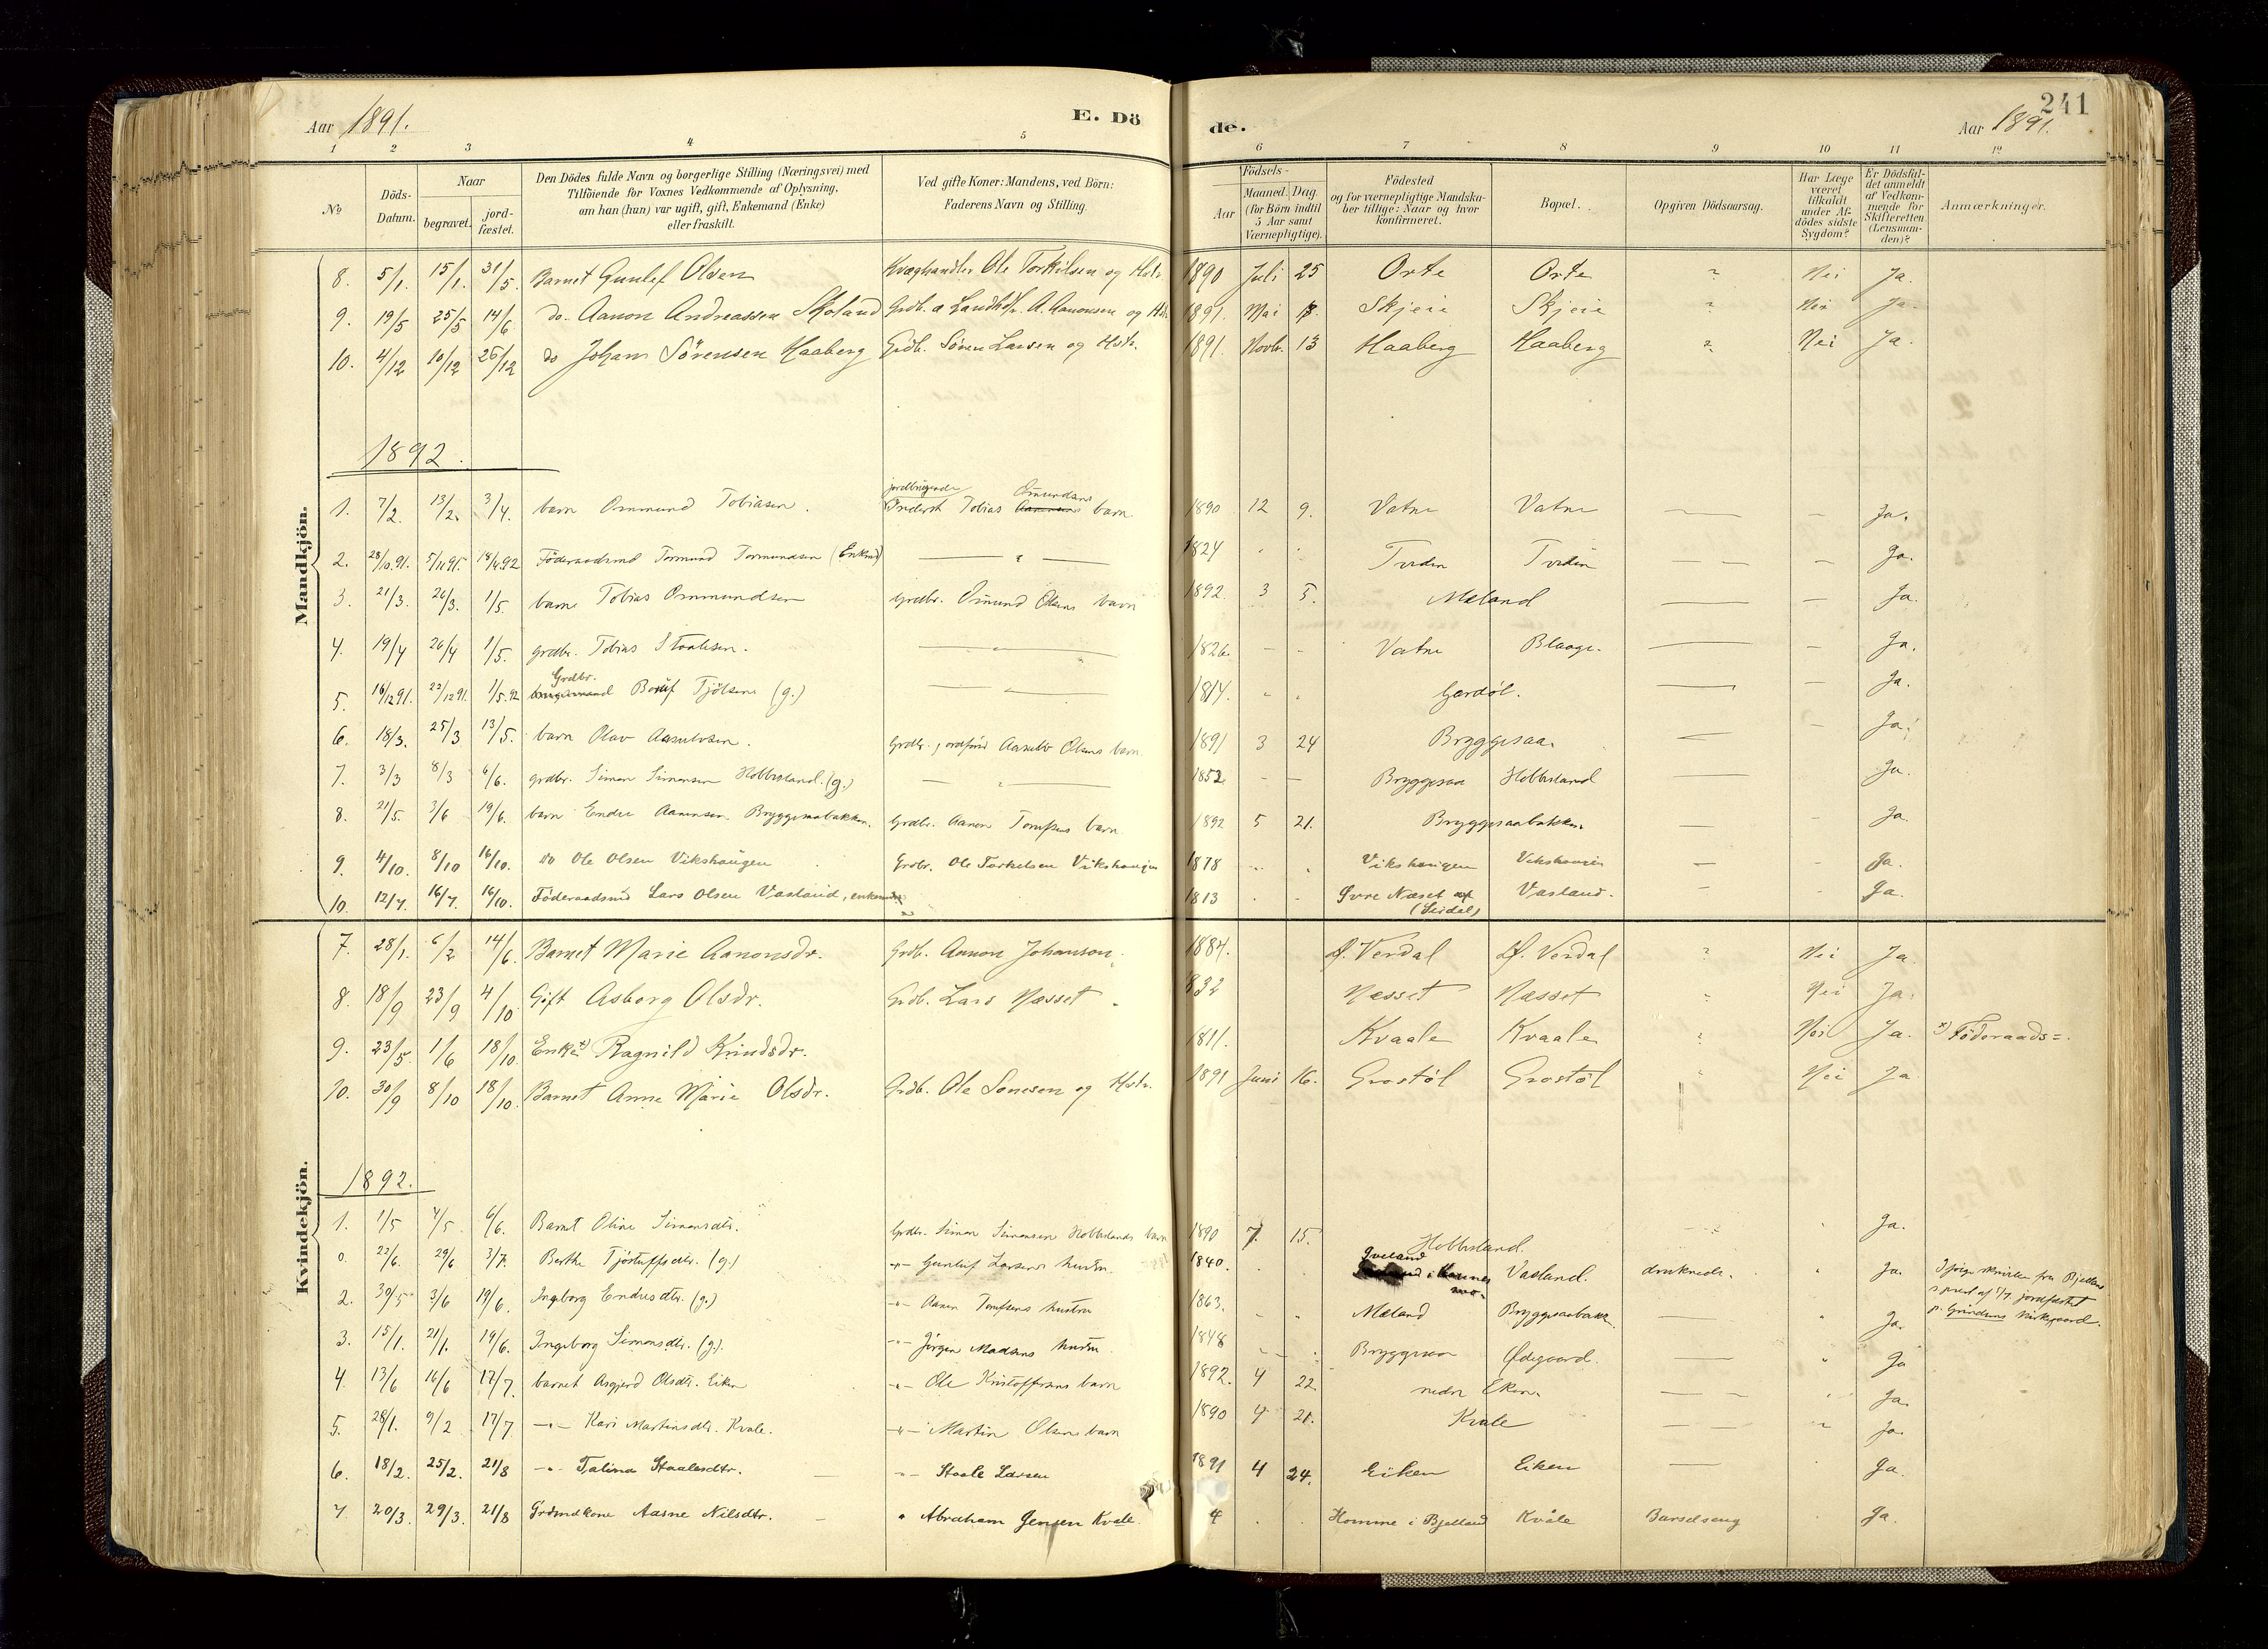 241
Aar 1891.
E. Dö
de.
Aar 1891.
1 2 3 4 5 6 7 8 9 10 11 12
No
Döds-Datum.
Naar
begravet.
jord-fæstet.
Den Dödes fulde Navn og borgerlige Stilling (Næringsvei) med
Tilföiende for Voxnes Vedkommende af Oplysning,
om han (hun) var ugift, gift, Enkemand (Enke)
eller fraskilt.
Ved gifte Koner: Mandens, ved Börn:
Faderens Navn og Stilling.
Födsels-
Aar
Maaned. Dag.
(for Börn indtil
5 Aar samt
Værnepligtige).
Födested
og for værnepligtige Mandska-
ber tillige: Naar og hvor
konfirmeret.
Bopæl.
Opgiven Dödsaarsag.
Har Læge
været
tilkaldt
under Af-
dödes sidste
Sygdom?
Er Dödsfal-
det anmeldt
af Vedkom-
mende for
Skifteretten
(Lensman-
den)?
Anmærkninger.
Mandkjön.
8. 5/1. 15/1. 31/5. Barnet Gunlef Olsen Kvæghandler Ole Torkilsen og Hstr. 1890 Juli 25 Orte Orte ? Nei Ja.
9. 19/5 25/5 14/6 do. Aanon Andreassen Skoland Grdb. a Landhdlr. A. Aanonsen og Hst. 1891. Mai 18. Skjeie Skjeie ? Nei Ja.
10. 4/12 10/12 26/12 do Johan Sörensen Haaberg Grdb. Sören Larsen og Hstr. 1891. Novbr. 13 Haaberg Haaberg ? Nei Ja.
1892.
1. 7/2. 13/2. 3/4. barn Ommund Tobiasen. jordbrugende Inderst Tobias Omundsens barn 1890 12 9. Vatne Vatne — — Ja.
2. 28/10.91. 5/11 91. 18/4.92 Föderaadsmd Tormund Tormundsen (Enkmd) — " — 1824 Tveden Tveden — — Ja.
3. 21/3. 26/3. 1/5 barn Tobias Ommundsen grdbr. Omund Olsens barn 1892. 3 5. Mæland — — Ja.
4. 19/4 26/4 1/5. grdbr. Tobias Staalesen. — " — 1826. - - Vatne Blaage. — — Ja.
5. 16/12 91. 23/12 91. 1/5.92 Grdbr. Tjölsen (g.) — " — 1814. Gardöl. — Ja.
6. 18/3. 25/3 13/5. barn Olav Aanulvsen. Grdbr., ordförer Olsens barn 1891 3 24 Bryggesaa. — - Ja.
7. 3/3 8/3 6/6. grdbr. Simon Simonsen Hobbesland. (g.) — " — 1852. - - Bryggesaa Hobbesland — Ja.
8. 21/5. 3/6 19/6. barn Endre Aanensen Bryggesaabakken. Grdbr. Aanen barn 1892 5 21. Bryggesaabakken. — Ja.
9. 4/10. 8/10 16/10. do Ole Olsen Vikshaugen Grdbr. Ole Torkelsen Vikshaugen 1878 Vikshaugen Vikshaugen — Ja.
10. 12/7. 16/7. 16/10. Föderaadsmd Lars Olsen Vasland, enkemand 1813 Øvre Næset (Lisdal) Vasland. — - Ja.
Kvindekjön.
7. 28/1. 6/2 14/6. Barnet Marie Aanonsdr. Grdb. Aanon Johanson. 1884. Ø. Verdal Ø. Verdal ? Nei Ja
8. 18/9 23/9 4/10. Gift Asborg Olsdr. Grdb. Lars Næsset. 832 Næsset Næsset ? Nei Ja.
9. 23/5. 1/6 18/10. Enke x) Ragnild Knudsdr. 1811. Kvaale Kvaale ? Nei Ja. x) Föderaads=.
10. 30/9 8/10 18/10. Barnet Anne Marie Olsdr. Grdb. Ole Sonesen og Hstr. 1891 Juni 16. Grostøl Grostøl Nei Ja
1892.
1. 1/5 7/5. 6/6. Barnet Oline Simonsdtr. Grdbr. Simon Simonsen Hobbeslands barn 1890 7. 15. Hobbesland. Ja.
0. 22/6. 29/6 3/7. Berthe Tjöstulfsdtr. (g.) -"- Gunluf Larsens hustru 1840. Iveland Vasland. druknede. " Ja. Ifölge skrivelse fra Bjellands sprest af 7/7 jordfæstet p. Grindems kirkegaard.
2. 30/5 3/6 19/6. Ingeborg Endresdtr. (g.) -"- Aanen hustru 1863. Mæland Bryggesaabakk. — " Ja.
3. 15/1. 21/1. 19/6. Ingeborg Simonsdtr. (g.). -"- Jörgen Madsens hustru 1848 Bryggesaa Ødegaard. — " Ja
4. 13/6 16/6 17/7. barnet Asgjerd Olsdtr. Eiken -"- Ole Kristoffersens barn 1892. 4 22. nedre Eken. — " Ja.
5. 28/1. 9/2 17/7 -"- Kari Martinsdtr. Kvale. -"- Martin Olsens barn 1890 4 21. Kvale — " Ja.
6. 18/2. 25/2. 21/8 -"- Talina Staalesdtr. -"- Staale Larsen 1891 4 24. Eiken Eiken — Ja.
7. 20/3. 29/3. 21/8 Grdmdkone Aasne Nilsdtr. " Abraham Jensen Kvale. 4 Homme i Bjelland Kvåle Barselseng Ja.